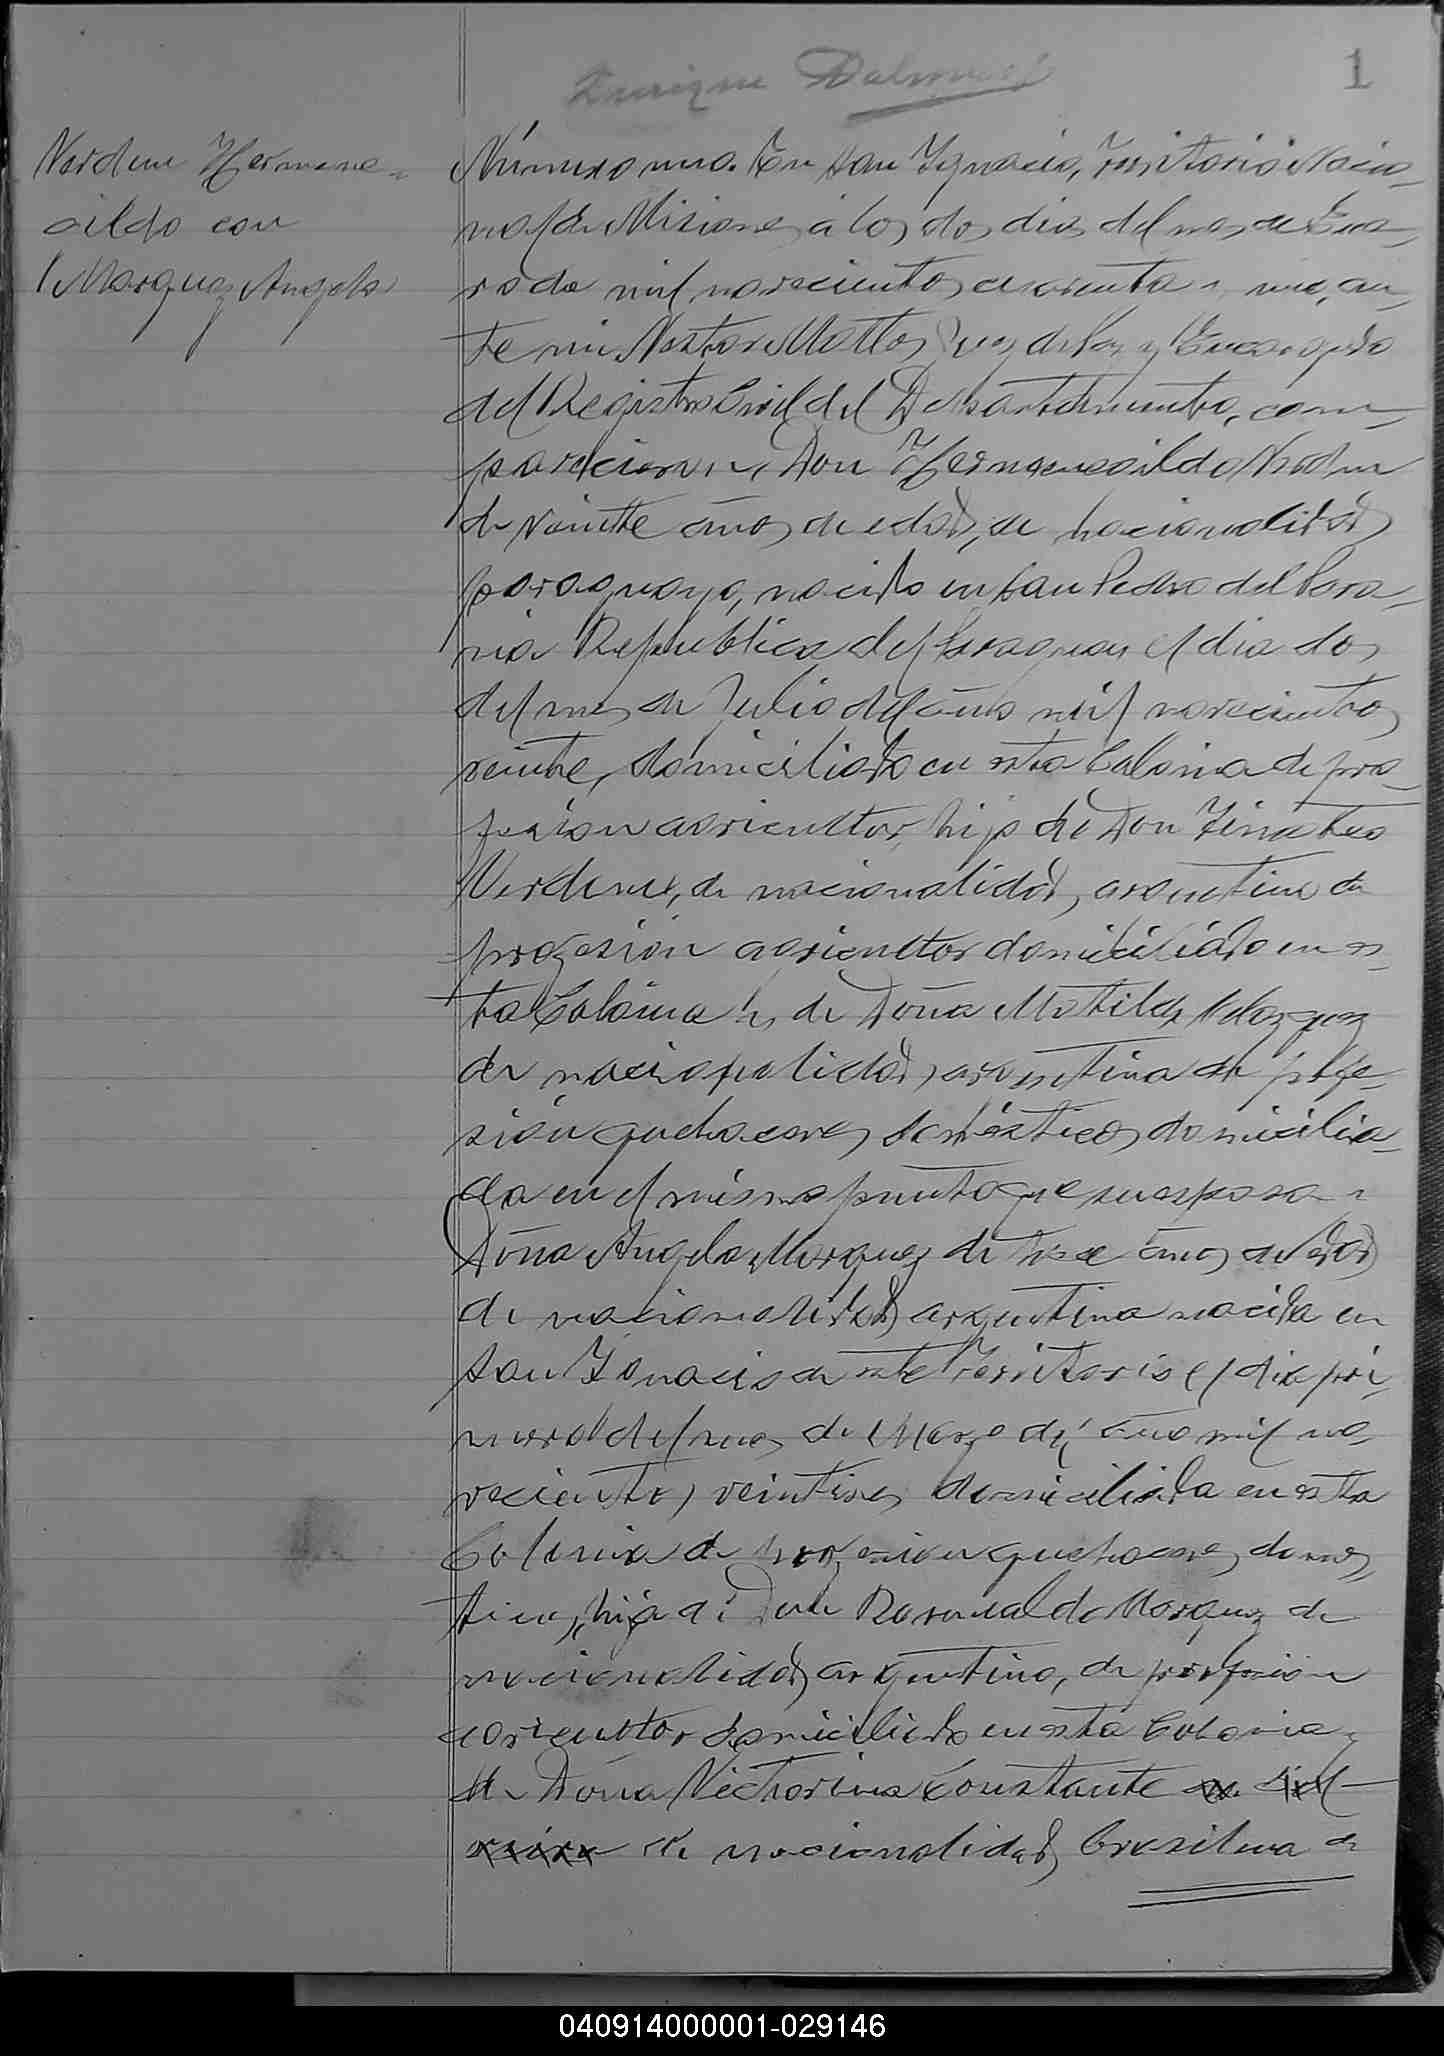 Enrique
1
Verdun Hermene-
gildo con
Marquez Angela
Número uno. En San Ygnacio, Territorio Nacio-
nal de Misiones a los dos dias del mes de Ene-
ro de mil novecientos cuarenta y uno, an-
te mi Nestor Mattos Juez de Paz y Encargado
del Registro Civil del Departamento, com-
parecieron, Don Hermenegildo Verdun
de veinte años de edad, de nacionalidad
paraguayo, nacido en San Pedro del Para-
ná Republica del Paraguay el dia dos
del mes de Julio del año mil novecientos
veinte, domiciliado en esta Colonia de pro-
fesion agricultor, hijo de Don Timoteo
Verdun, de nacionalidad argentino de
profesión agricultor domiciliado en es-
ta Colonia y de Doña Matilde
de nacionalidad argentina de profe-
sión quehaceres domésticos domicilia-
da en el mismo punto que su esposo y
Doña Angela Marquez de trece años de edad
de nacionalidad argentina nacida en
San Ygnacio de este Territorio el dia pri-
mero del mes de Marzo del año mil no-
vecientos veintisiete domiciliada en esta
Colonia de profesion quehaceres domes-
ticos, hija de Don Romualdo Marquez de
nacionalidad argentino, de profesion
agricultor domiciliado en esta Colonia y
de Doña Victorina Constante
de nacionalidad brasilera de
040914000001-029146